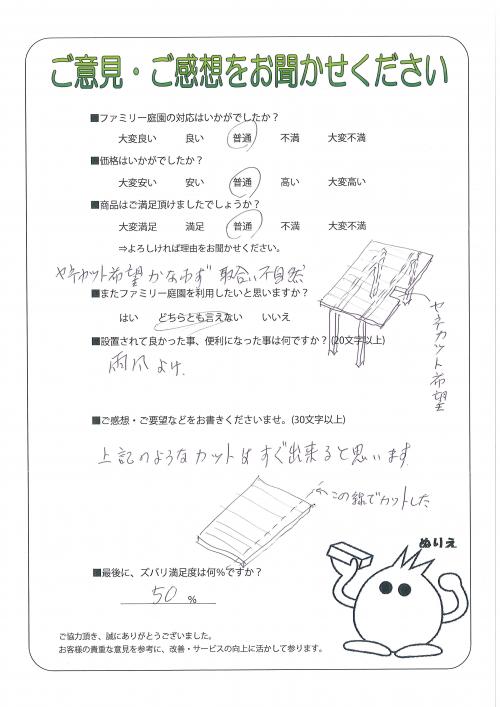 ご意見・ご感想をお聞かせください
■ファミリー庭園の対応はいかがでしたか？
大変良い 良い 普通 不満 大変不満
■価格はいかがでしたか？
大変安い 安い 普通 高い 大変高い
■商品はご満足頂けましたでしょうか？
大変満足 満足 普通 不満 大変不満
⇒よろしければ理由をお聞かせください。
カット希望かなわず 取合い不自然
■またファミリー庭園を利用したいと思いますか？
はい どちらとも言えない いいえ
カット希望
■設置されて良かった事、便利になった事は何ですか？(20文字以上)
雨よけ
■ご感想・ご要望などをお書きくださいませ。(30文字以上)
上記のようなカットはすぐ出来ると思います
この線でカットした
ぬりえ
■最後に、ズバリ満足度は何％ですか？
50 %
ご協力頂き、誠にありがとうございました。
お客様の貴重な意見を参考に、改善・サービスの向上に活かして参ります。